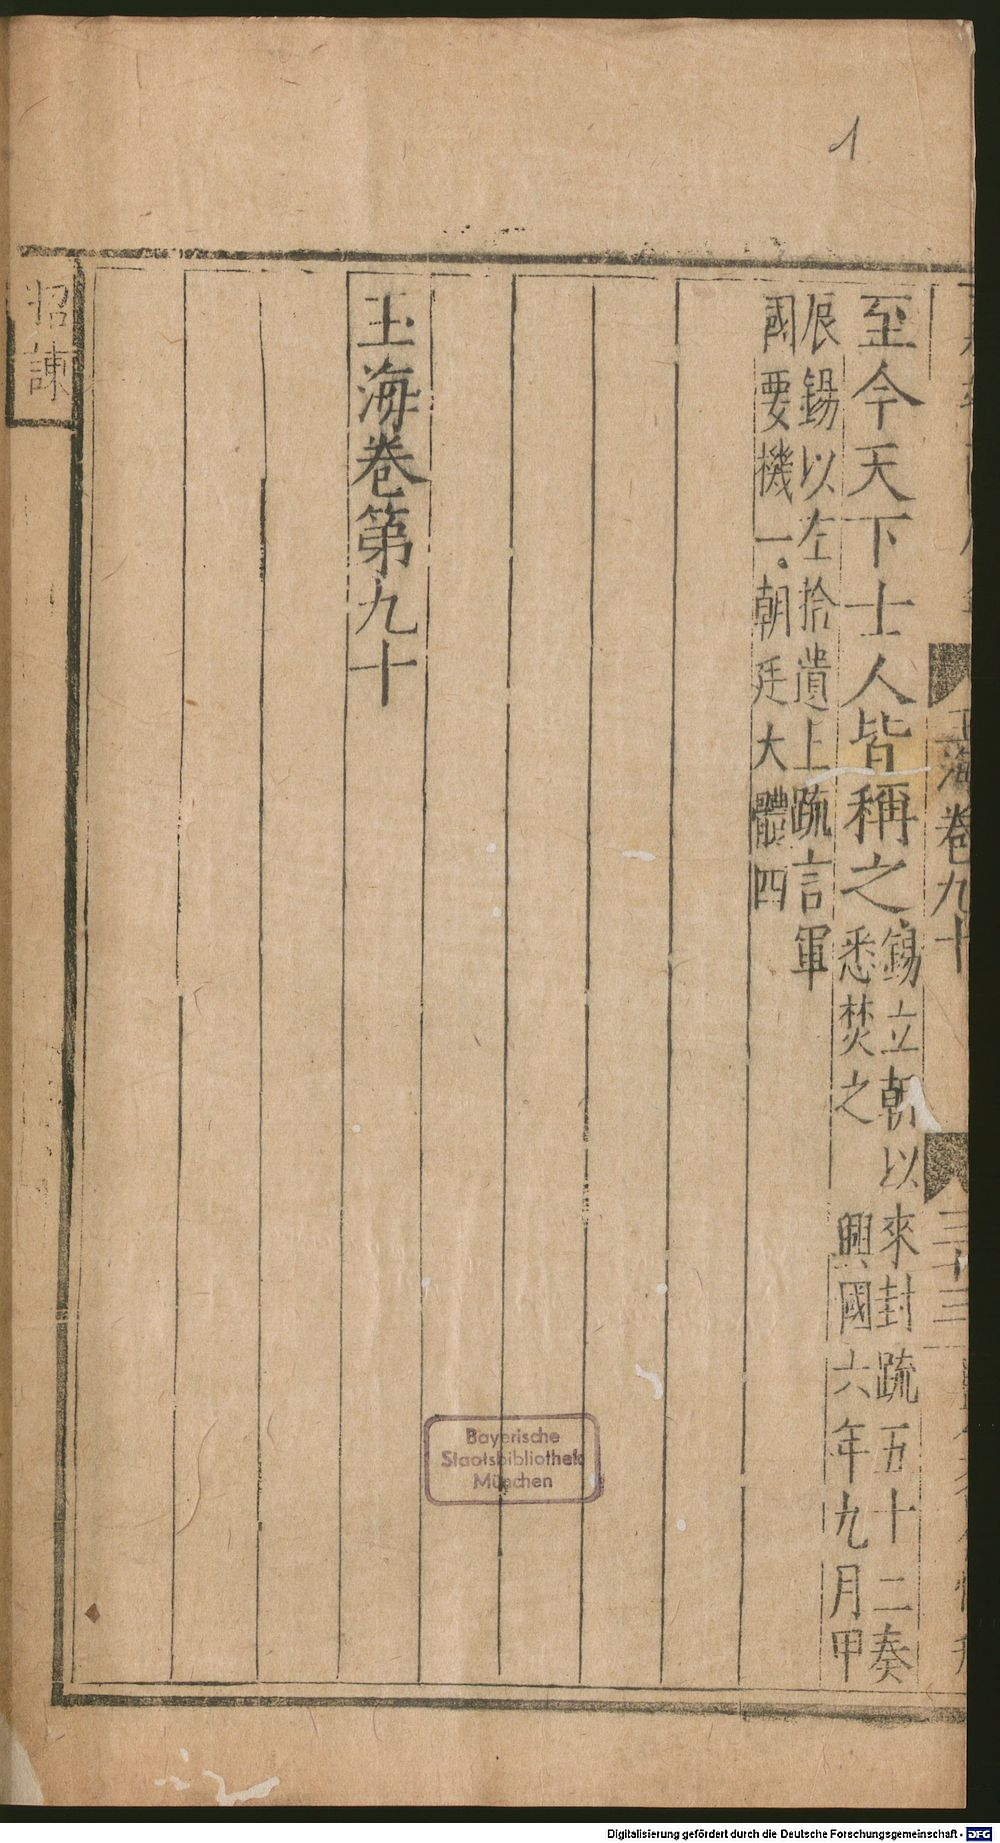 1
玉海卷九十
三十三
至今天下士人皆稱之
錫立朝以來封疏五十二奏
悉焚之 興國六年九月甲
辰錫以左拾遺上疏言軍
國要機一朝廷大體四
玉海卷第九十
招諫
Bayerische
Staatsbibliothek
München
Digitalisierung gefördert durch die Deutsche Forschungsgemeinschaft - DFG